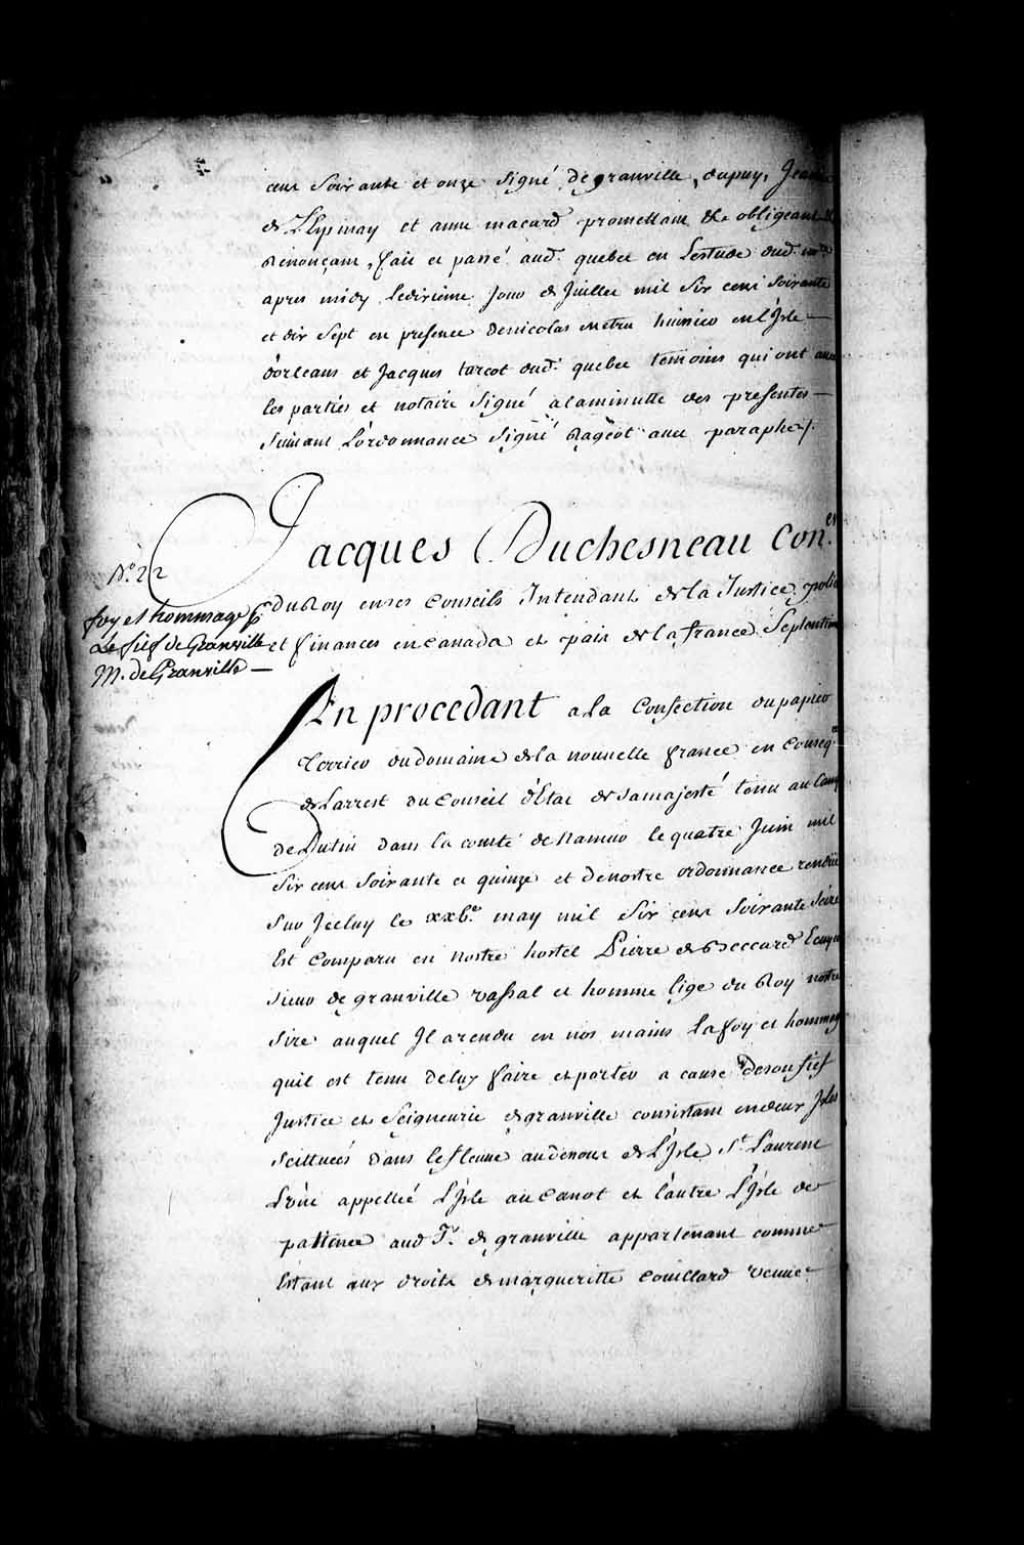 cens soixante et onze signé degranville, dupuy, Jeanne
de Lespinay et anne macard promettant &c obligeant &c
Renonçant, fait et passé aud. quebec en Lestude dud. not.re
apres midy Ledixieme Jour de Juillet mil six cens soixante
et dix Sept en presence denicolas metru huissier enl'Isle
dorleans et Jacques turcot dud. quebec temoins qui ont avec
les parties et notaire Signé alaminutte des presentes
Suivant L'ordonnance Signé Rageot avec paraphe /.
Jacques Duchesneau Con.er
duRoy enses Conseils Intendant de la Justice polic
et finances encanada et pais de la france Septentrio
N.o 22
foy et hommage p
Le fief de Granville
M. de Granville
En procedant a la Confection du papier
Terrier dudomaine de la nouvelle france en Conseq.ce
de Larrest du Conseil d'Etat de samajesté tenu au Camp
de Lutin dans la comté de Namur le quatre Juin mil
six cens soixante et quinze et denostre ordonnance rendüe
sur Jceluy le xxb.e may mil six cens soixante seize
Est Comparu en nostre hostel Pierre de Beccard Ecuyer
sieur de granville vassal et homme lige du Roy nostre
sire auquel Jl a rendu en nos mains la foy et hommag
quil est tenu deluy faire et porter a cause deson fief
Justice et Seigneurie de granville consistant endeux Jsles
scittuées dans lefleuve audessous de L'Isle S.t Laurent
L'une appellée L'Isle au Canot et l'autre L'Isle de
pattience aud S.r de granville appartenant comme
Estant aux droits de margueritte Couillard veuve